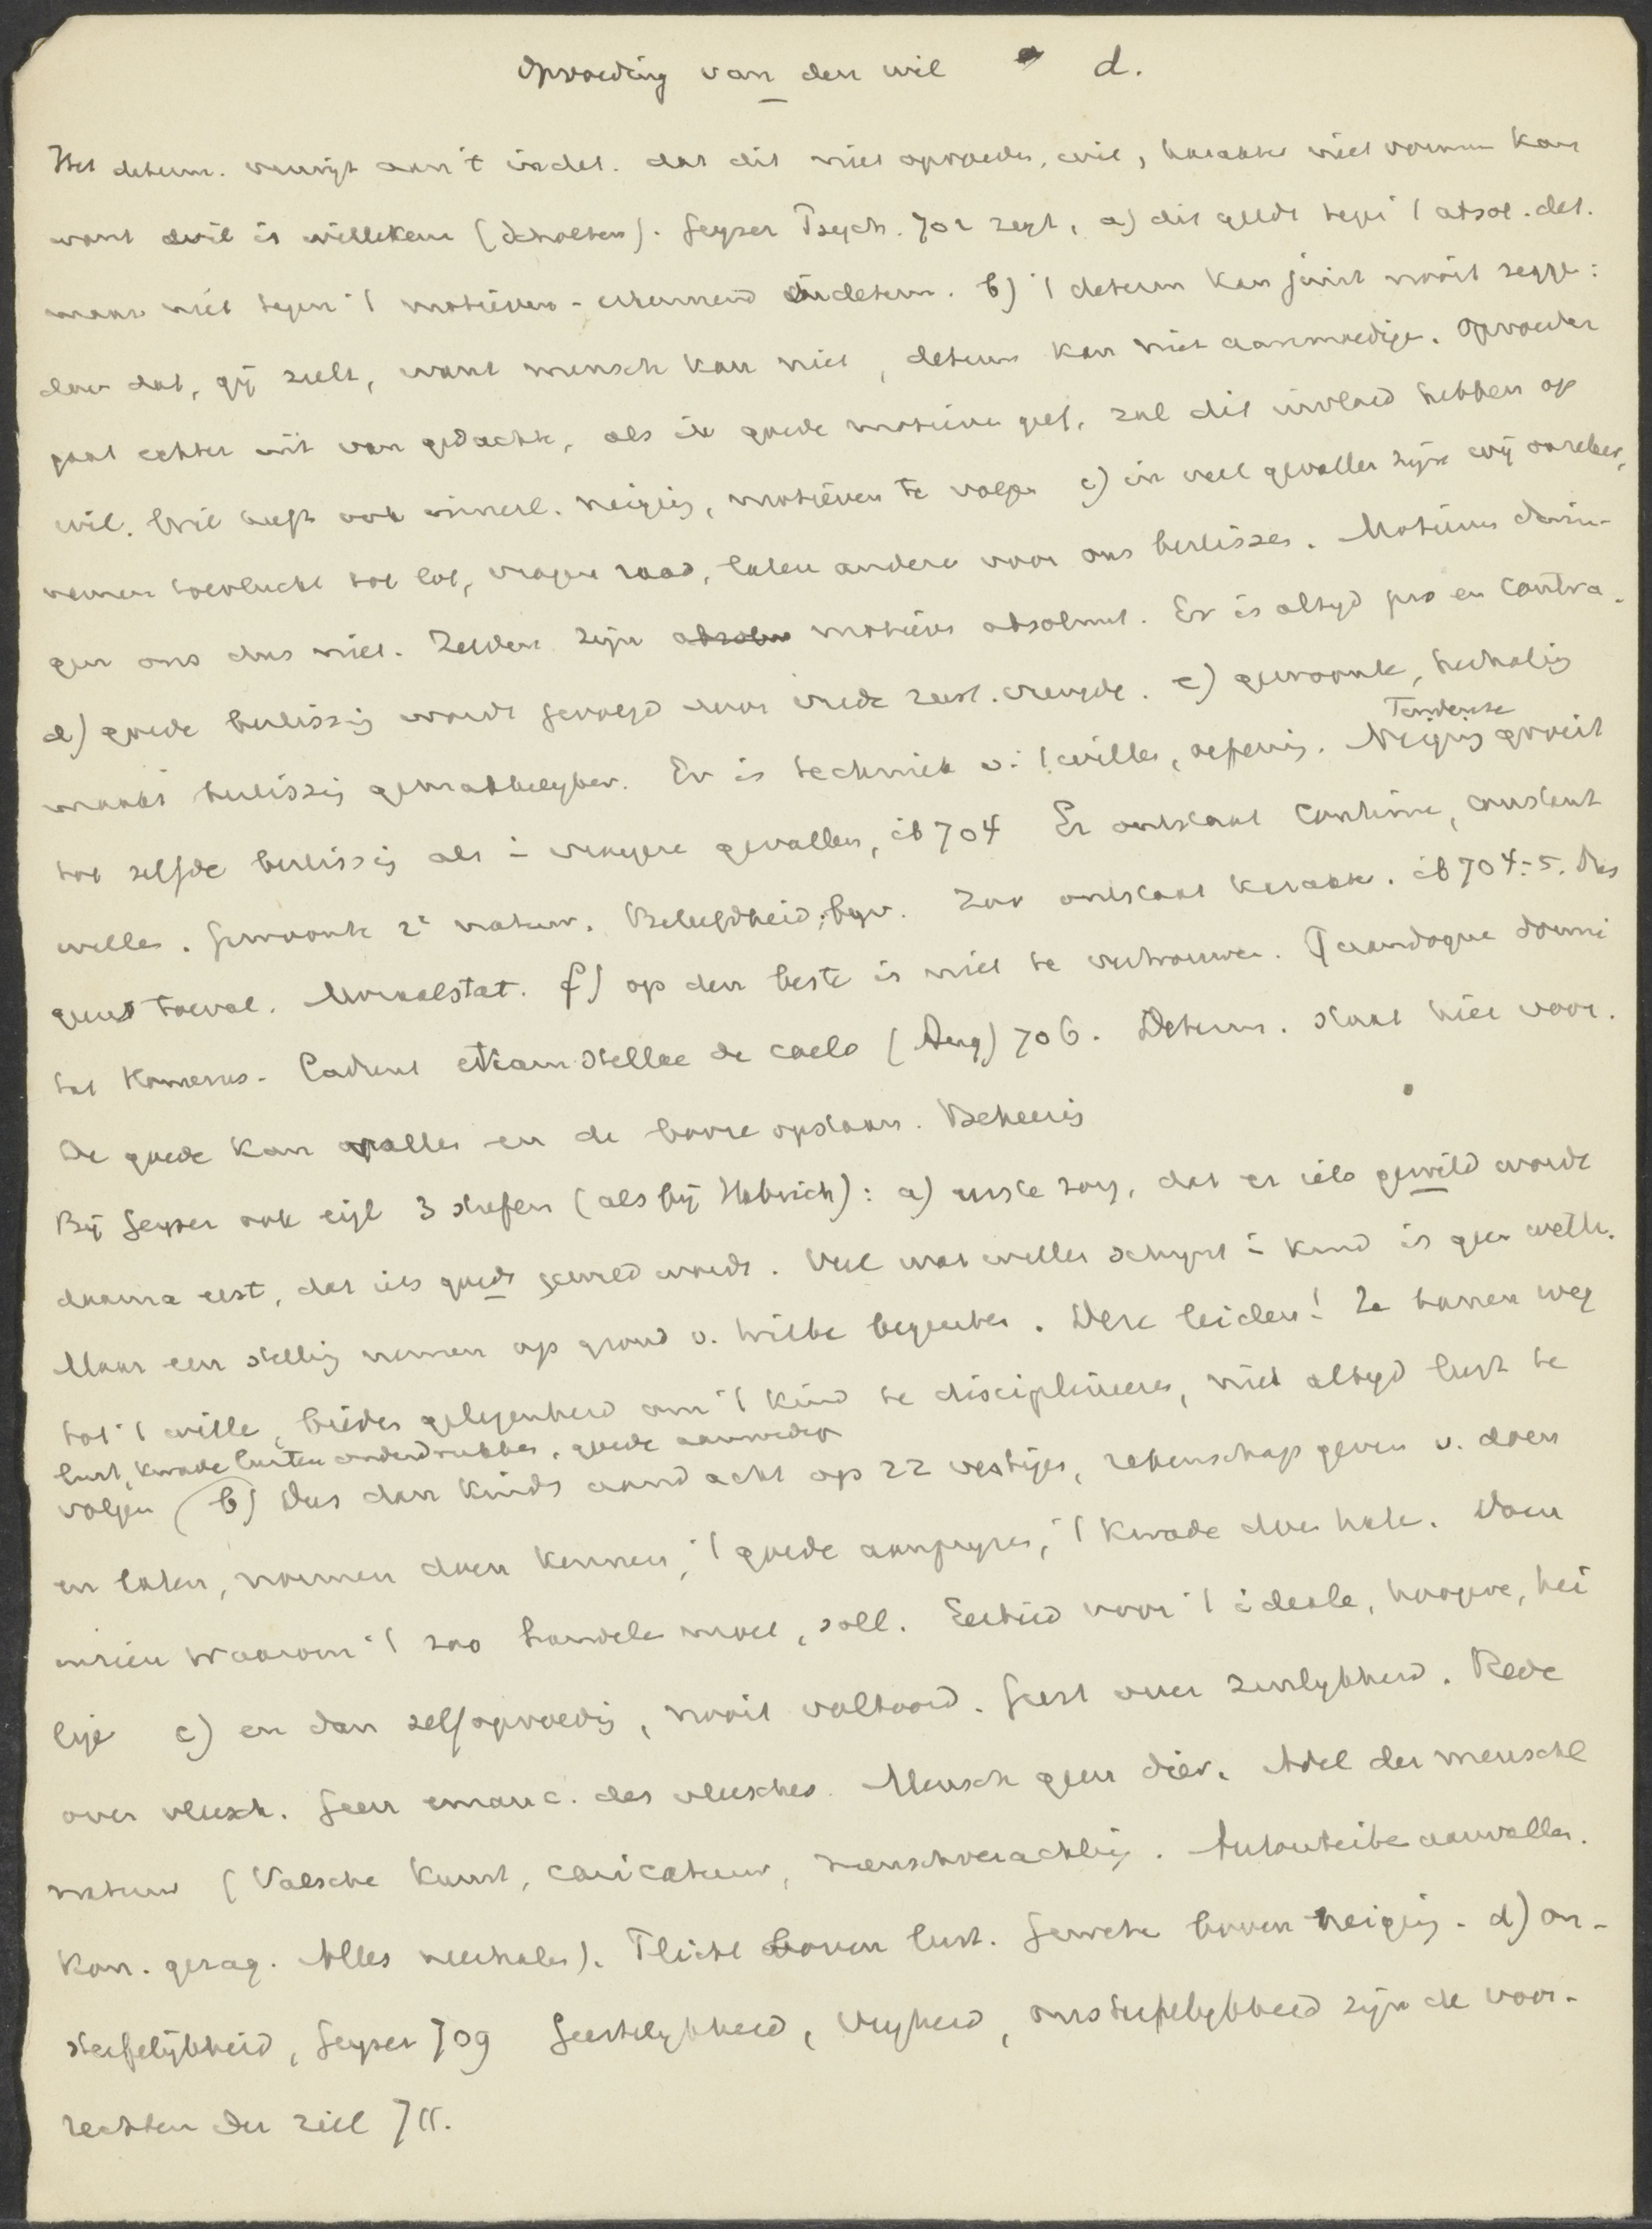 Opvoeding van den wil d.
Het determ. verwijt aan 't indet. dat dit niet opvoeden, wil, karakter niet vormen kan
want wil is willekeur (Scholten). Geyser Psych. 702 zegt, a) dit geldt tegen 't absol. det.
maar niet tegen 't motieven-erkennend indeterm. b) 't determ kan juist nooit zeggen:
doe dat, gij zult, want mensch kan niet, determ kan niet aanmoedigen. Opvoeder
gaat echter uit van gedachte, als ik goede motieven geef, zal dit invloed hebben op
wil. Wil heeft ook innerl. neiging, motieven te volgen c) in veel gevallen zijn wij onzeker,
nemen toevlucht tot lot, vragen raad, laten andere voor ons beslissen. Motieven dwin-
gen ons dus niet. Zelden zijn motieven absoluut. Er is altyd pro en contra.
d) goede beslissing wordt gevolgd door vrede zeer. vreugde. e) gewoonte, herhaling
maakt beslissing gemakkelyker. Er is techniek v. 't willen, oefening. Neiging Tendenze groeit
tot zelfde beslissing als in vroegere gevallen, ib 704 Er ontstaat continu, constant
willen. Gewoonte 2e natuur. Beleefdheid, bijv. Zoo ontstaat karakter. ib 704-5. Dus
geen toeval. Moraalstat. f) op den beste is niet te vertrouwen. Quandoque dormi
tat Homerus. Cadunt etiam stellae de caelo (Aug) 706. Determ. staat hier voor.
De goede kan vallen en de booze opstaan. Bekeering
Bij Geyser ook eigl 3 trefen (als bij Habrich): a) eerste zorg, dat er iets gewild wordt
daarna eerst, dat iets goeds gewild wordt. Veel wat willen schynt in kind is geen wil.
Maar een stelling nemen op grond v. wilde begeerten. Deze leiden! Ze banen weg
tot 't wille, bieden gelegenheid om 't kind te disciplineeren, niet altyd lust te
lust, kwade lusten onderdrukken, goede aanmoedigen
volgen b) Dus dan kinds aandacht op zz vestigen, rekenschap geven v. doen
en laten, normen doen kennen, 't goede aanpryzen, 't kwade doen haten. Doen
inzien waarom 't zoo handelen moet, soll. Eerbied voor 't ideale, hoogere, hei
lige c) en dan zelfopvoeding, nooit voltooid. Geest over zinlykheid. Rede
over vleesch. Geen emanc. des vleesches. Mensch geen dier. Adel der menschel
natuur (Valsche kunst, caricatuur, menschverachting. Autoriteiten aanvallen.
Kon. gezag. Alles neerhalen). Plicht boven lust. Geweten boven neiging. d) on-
sterfelijkheid, Geyser 709 Geestelykheid, vryheid, onsterfelykheid zijn de voor-
rechten der ziel 711.